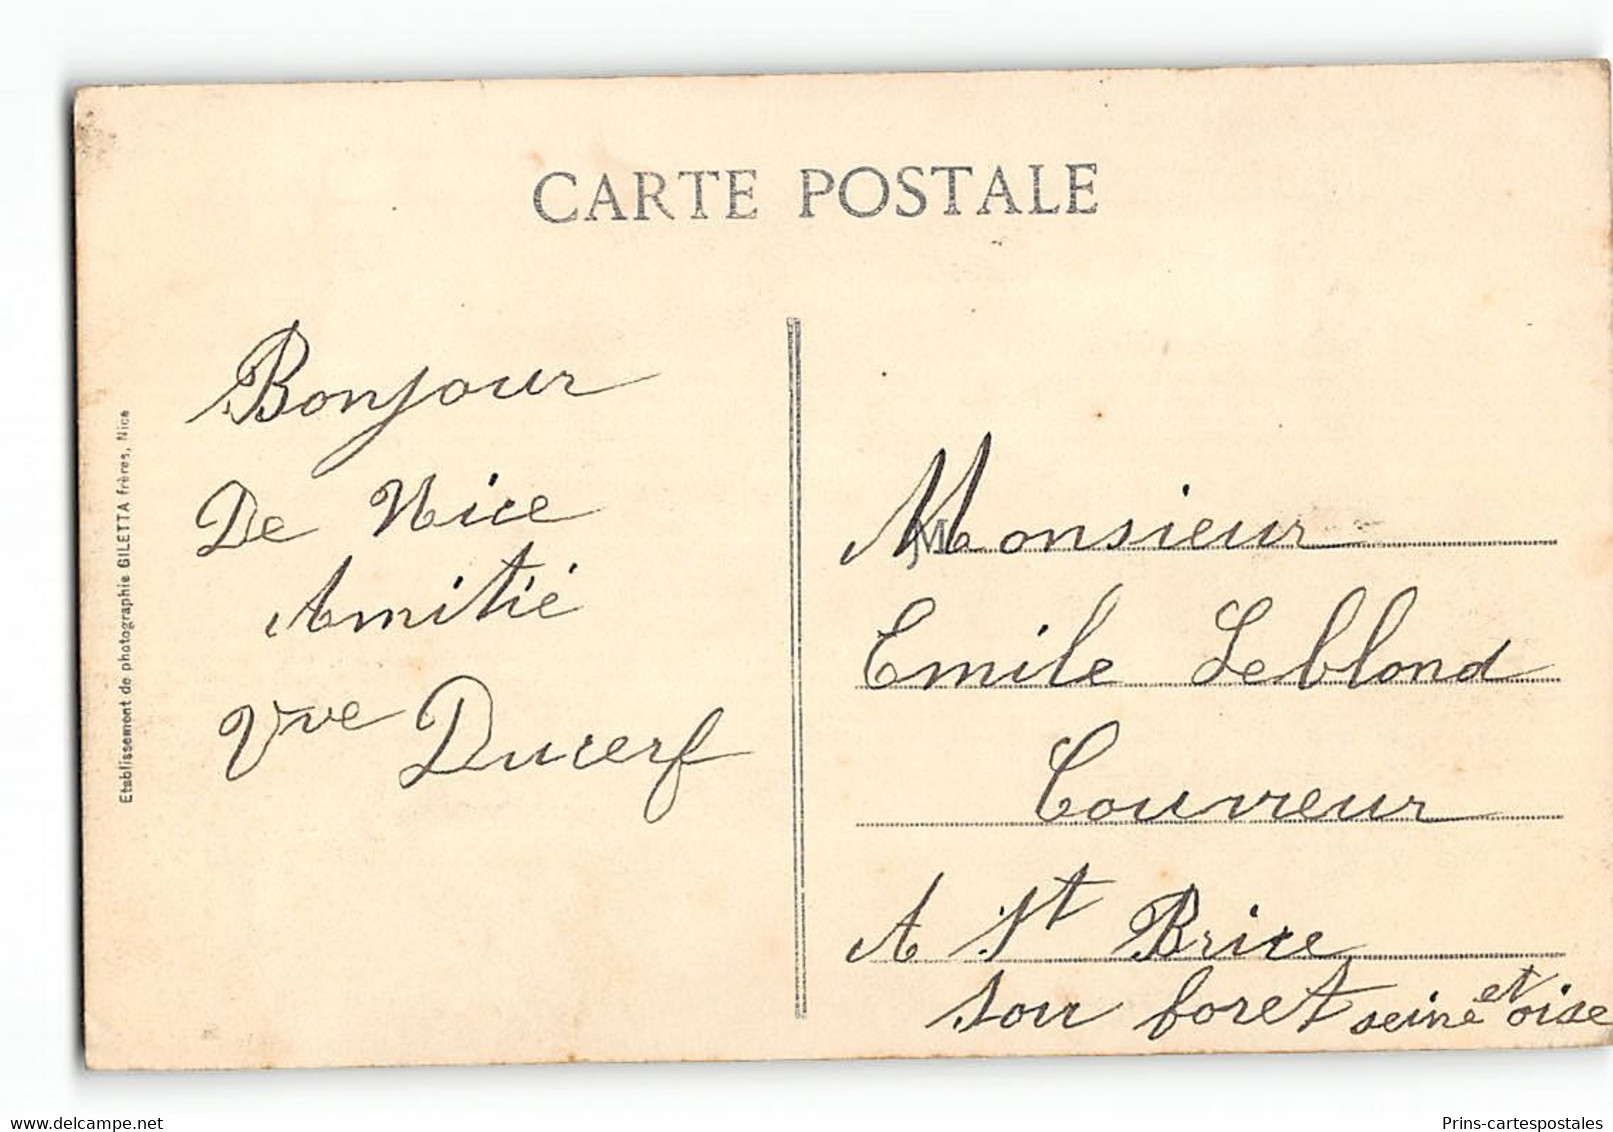 CARTE POSTALE
Bonjour
De Nice
Amitié
Vve Ducerf
Etablissement de photographie GILETTA frères, Nice
M
Monsieur
Emile Leblond
Couvreur
A St Brice
sou foret seine et oise
Prins-cartespostales